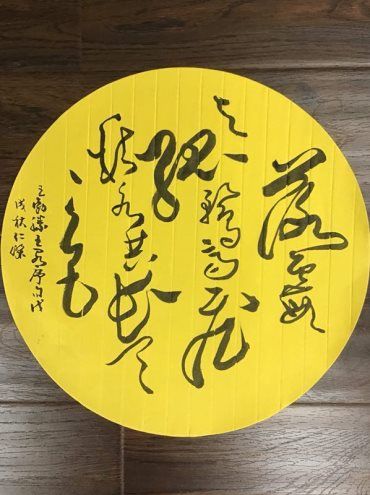 落霞
与孤鹜齐飞
秋水共长天
一色
王勃滕王阁序句戊
戌秋仁傑